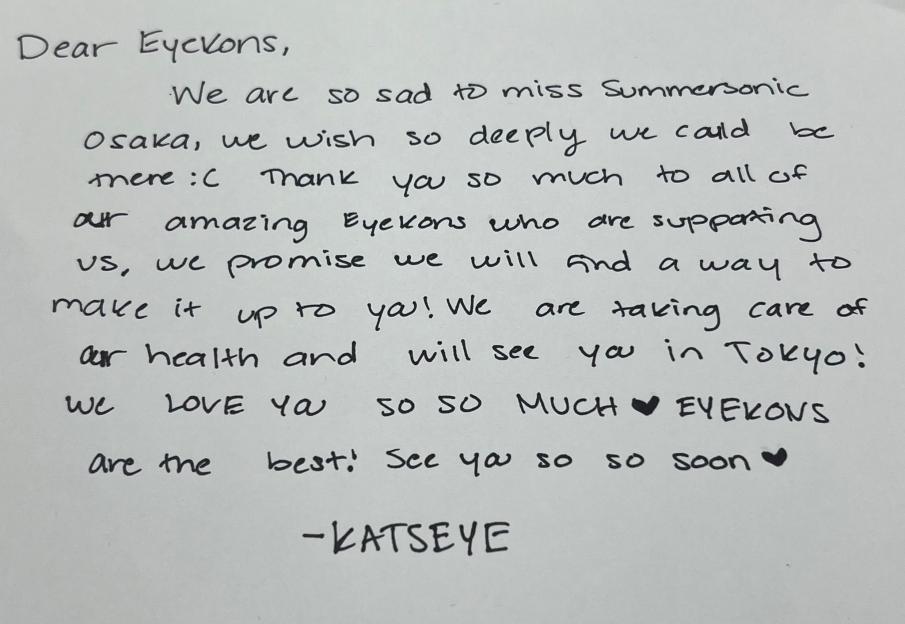 Dear Eyekons,
We are so sad to miss Summersonic
Osaka, we wish so deeply we could be
there :C Thank you so much to all of
our amazing Eyekons who are supporting
us, we promise we will find a way to
make it up to you! We are taking care of
our health and will see you in Tokyo!
We LOVE YOU SO SO MUCH ♥ EYEKONS
are the best! See you so so soon ♥
-KATSEYE